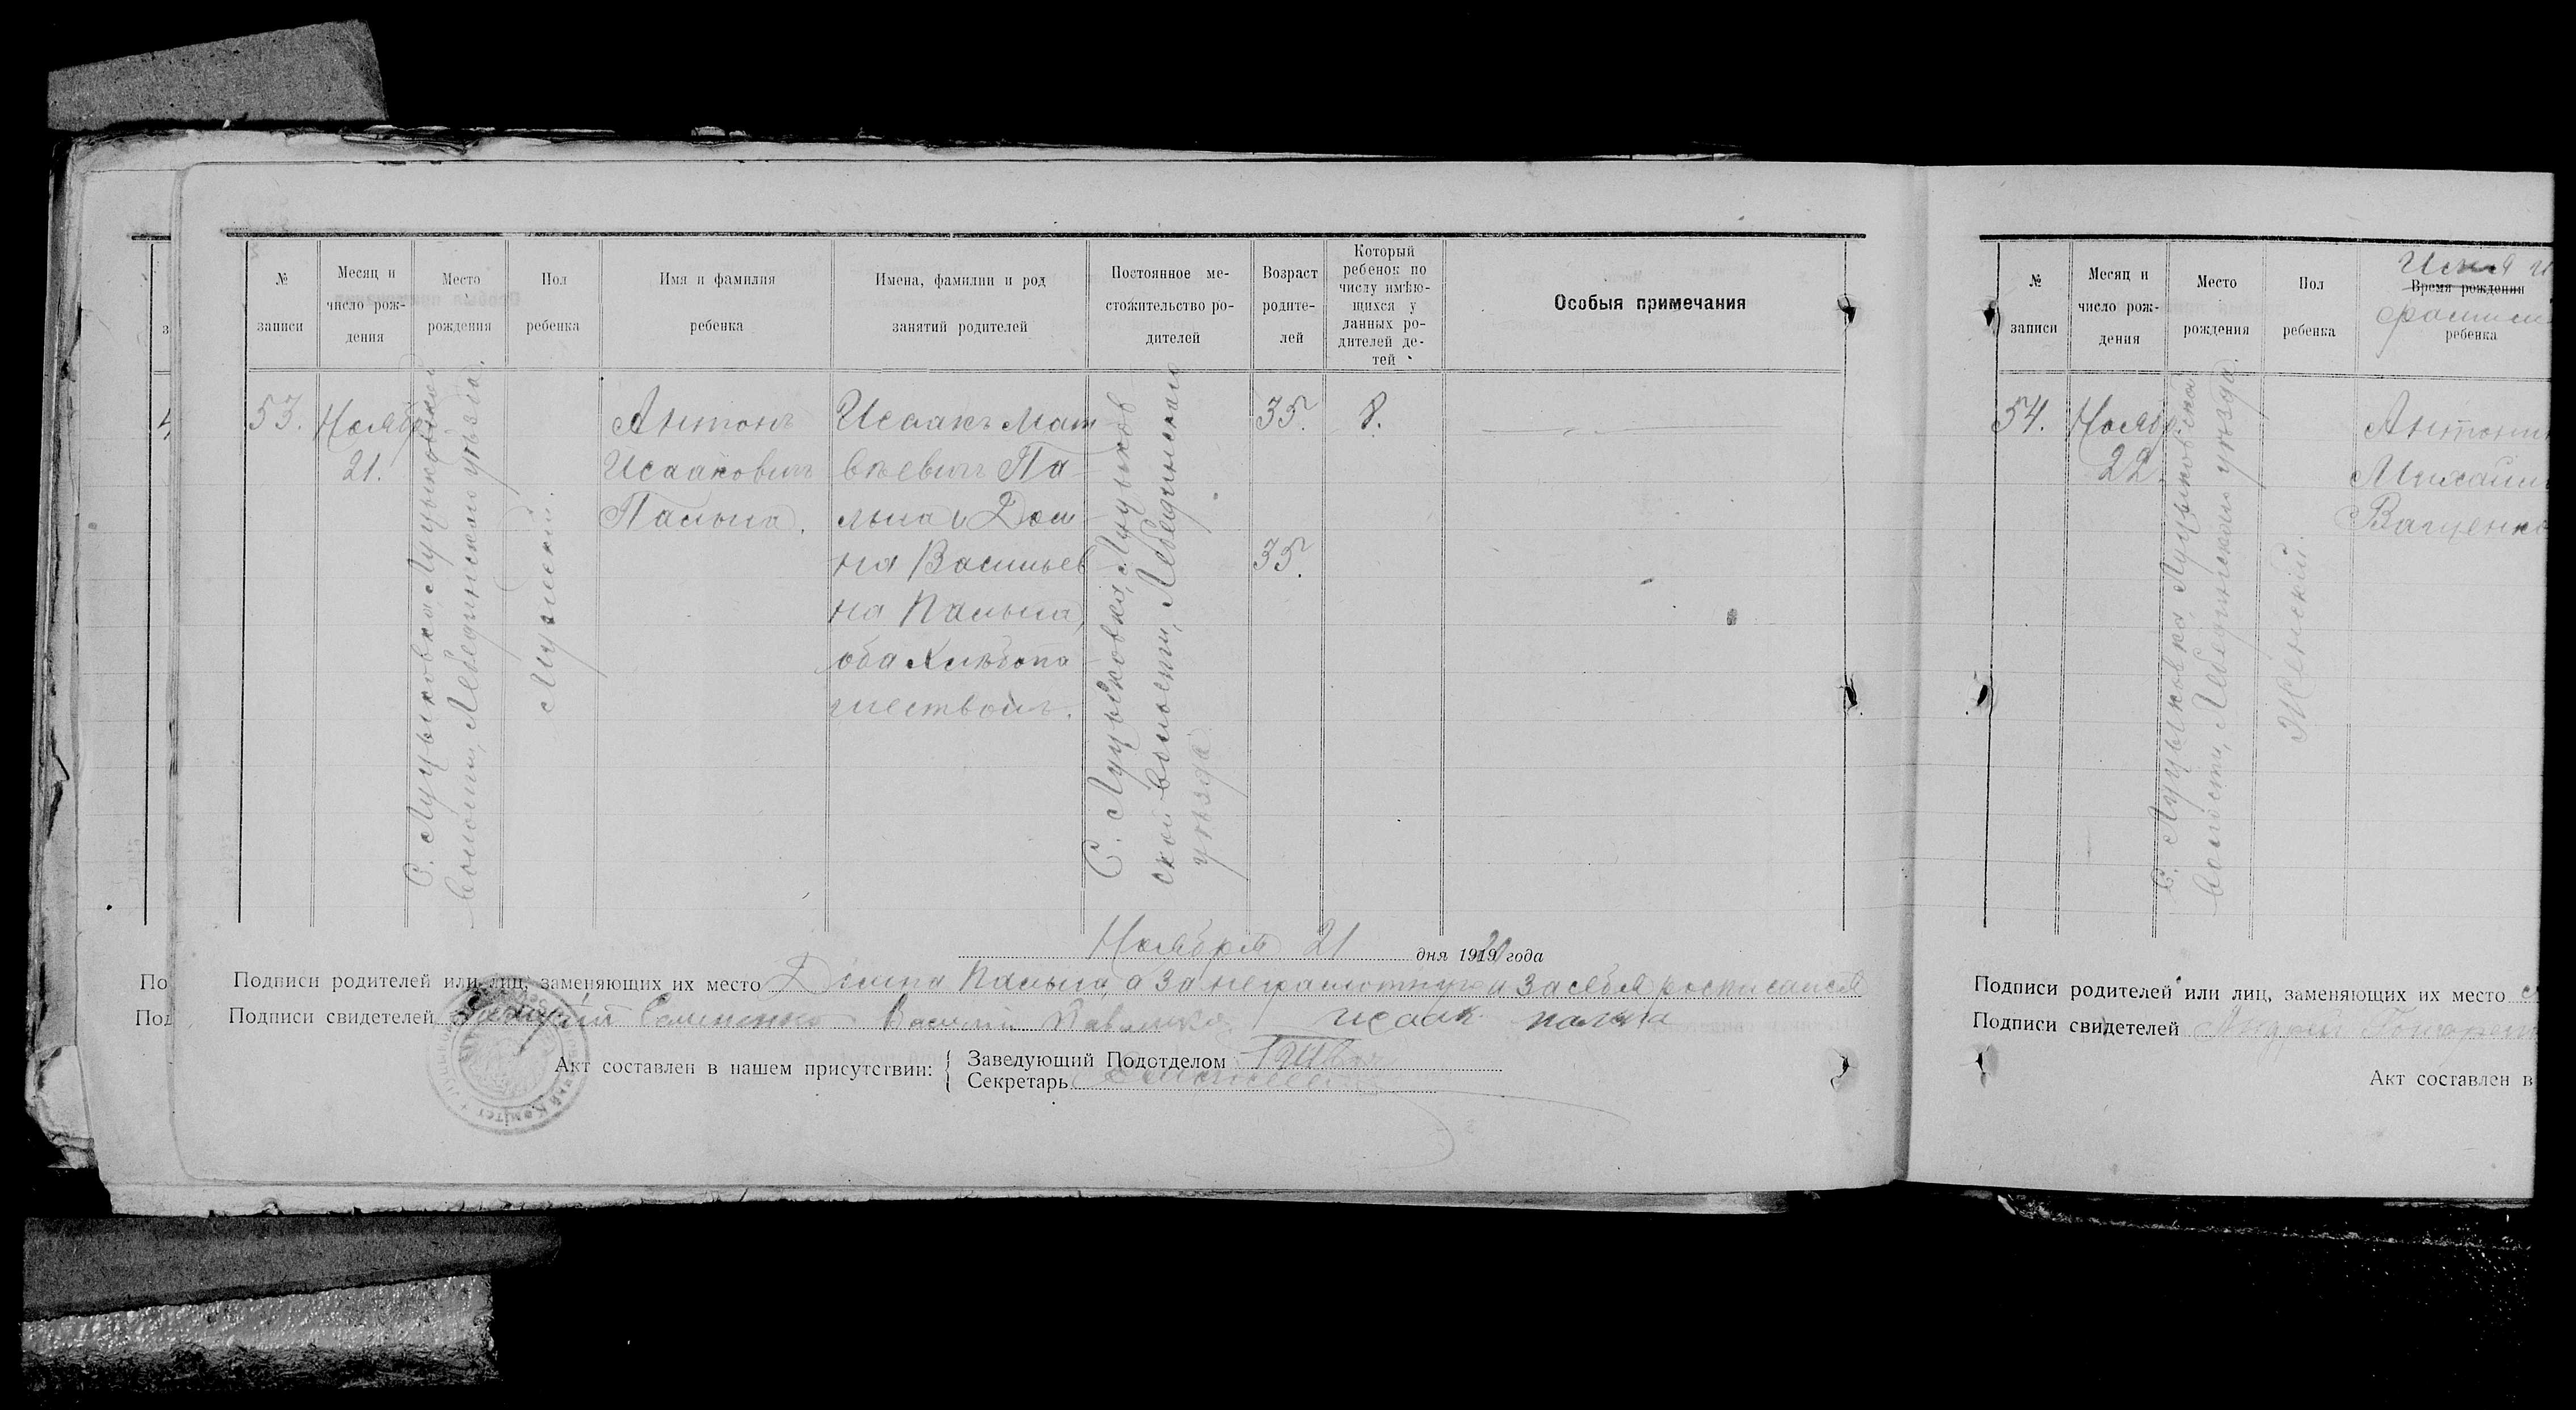 №
записи
Месяц и
число рож-
дения
Место
рождения
Пол
ребенка
Имя и фамилия
ребенка
Имена, фамилии и род
занятий родителей
Постоянное ме-
стожительство ро-
дителей
Возраст
родите-
лей
Который
ребенок по
числу имѣю-
щихся у
данных ро-
дителей де-
тей
Особыя примечания
53.
Ноябр
21.
С. Луцыковка, Луцыковской
волости, Лебединскаго уѣзда.
Мужской.
Антонъ
Исааковичъ
Пальча.
Исаакъ Мат
вѣевичъ Па
льча и Дом
на Васильев
на Пальча,
оба хлѣбопа
шествомъ.
С. Луцыковка, Луцыков
ской волости, Лебединскаго
уѣзда
35.
35.
8.
Ноября 21 дня 1920 года
Подписи родителей или лиц, заменяющих их место Домна Пальча, а за неграмотную и за себя росписался
Подписи свидетелей Семененко Василий исаак
Акт составлен в нашем присутствии:
Заведующий Подотделом
Секретарь
№
записи
Месяц и
число рож-
дения
Место
рождения
Пол
ребенка
Время рождения
ребенка
54.
Ноябр.
22.
С. Луцыковка, Луцыковской
волости, Лебединскаго уѣзда.
Женский.
Антони
Михайл
Ващенко
Подписи родителей или лиц, заменяющих их место
Подписи свидетелей
Акт составлен в